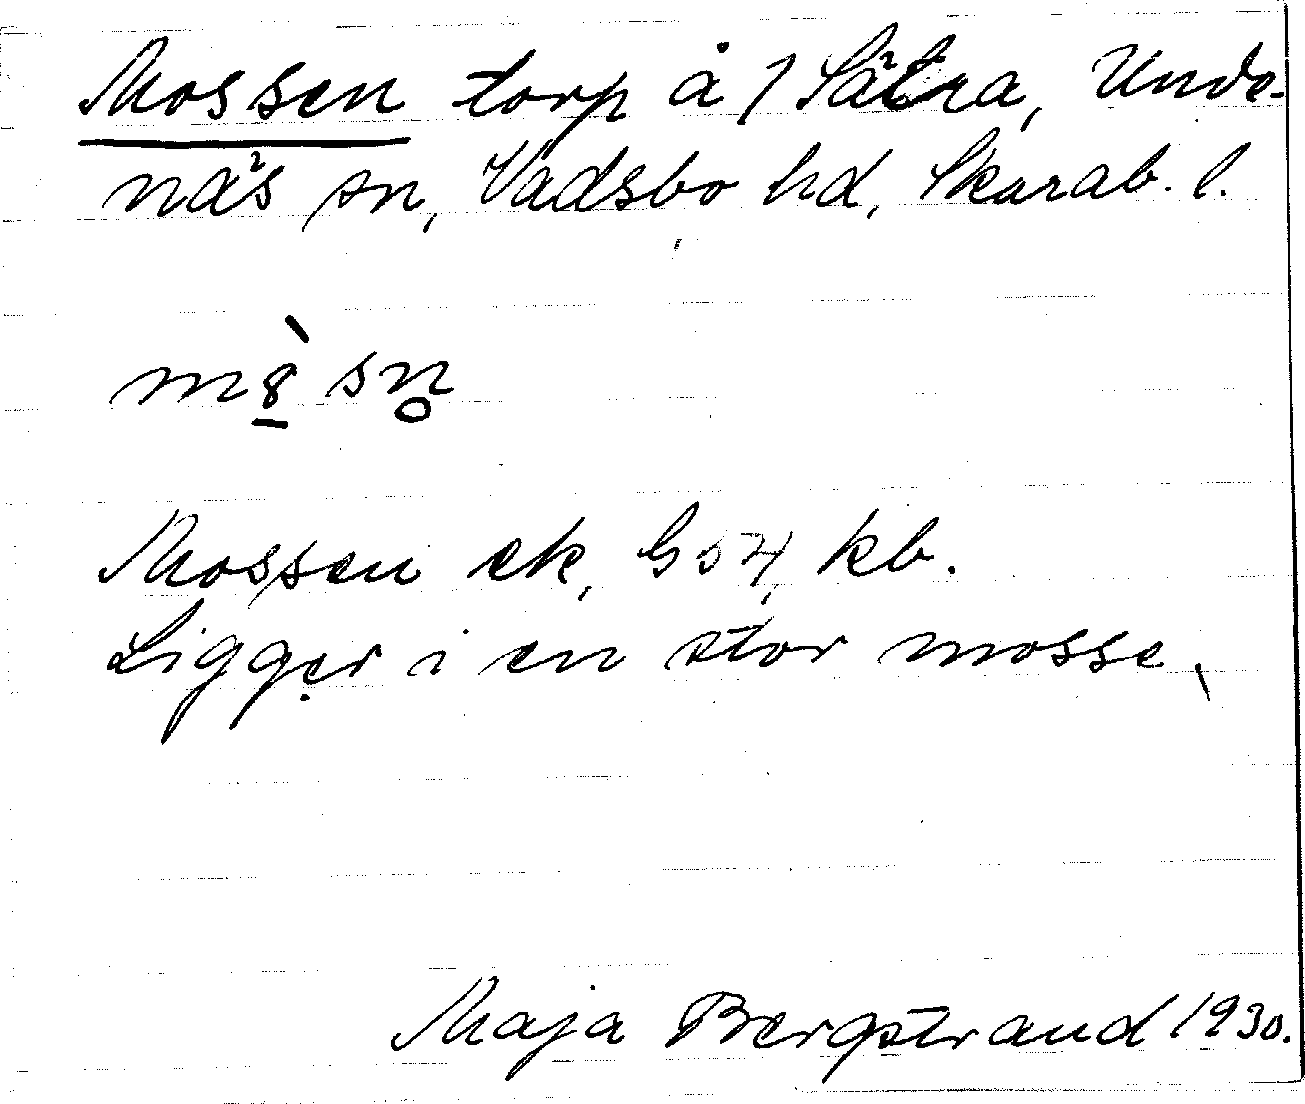 Mossen torp å 1 Sätra, Unde-
näs sn, Vadsbo hd, Skarab. l.
mȣ̠̀sn̥
Mossen ek, G54, kb.
Ligger i en stor mosse.
Maja Bergstrand 1930.